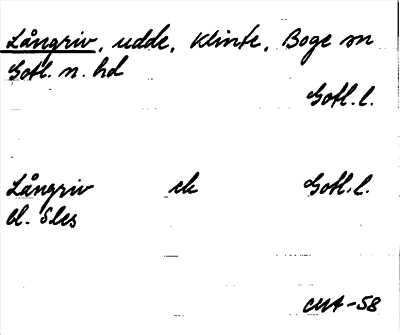 Långriv, udde, Klinte, Boge sn
Gotl. n. hd
Gotl. l.
Långriv ek Gotl. l.
bl. Sles
CMA-58